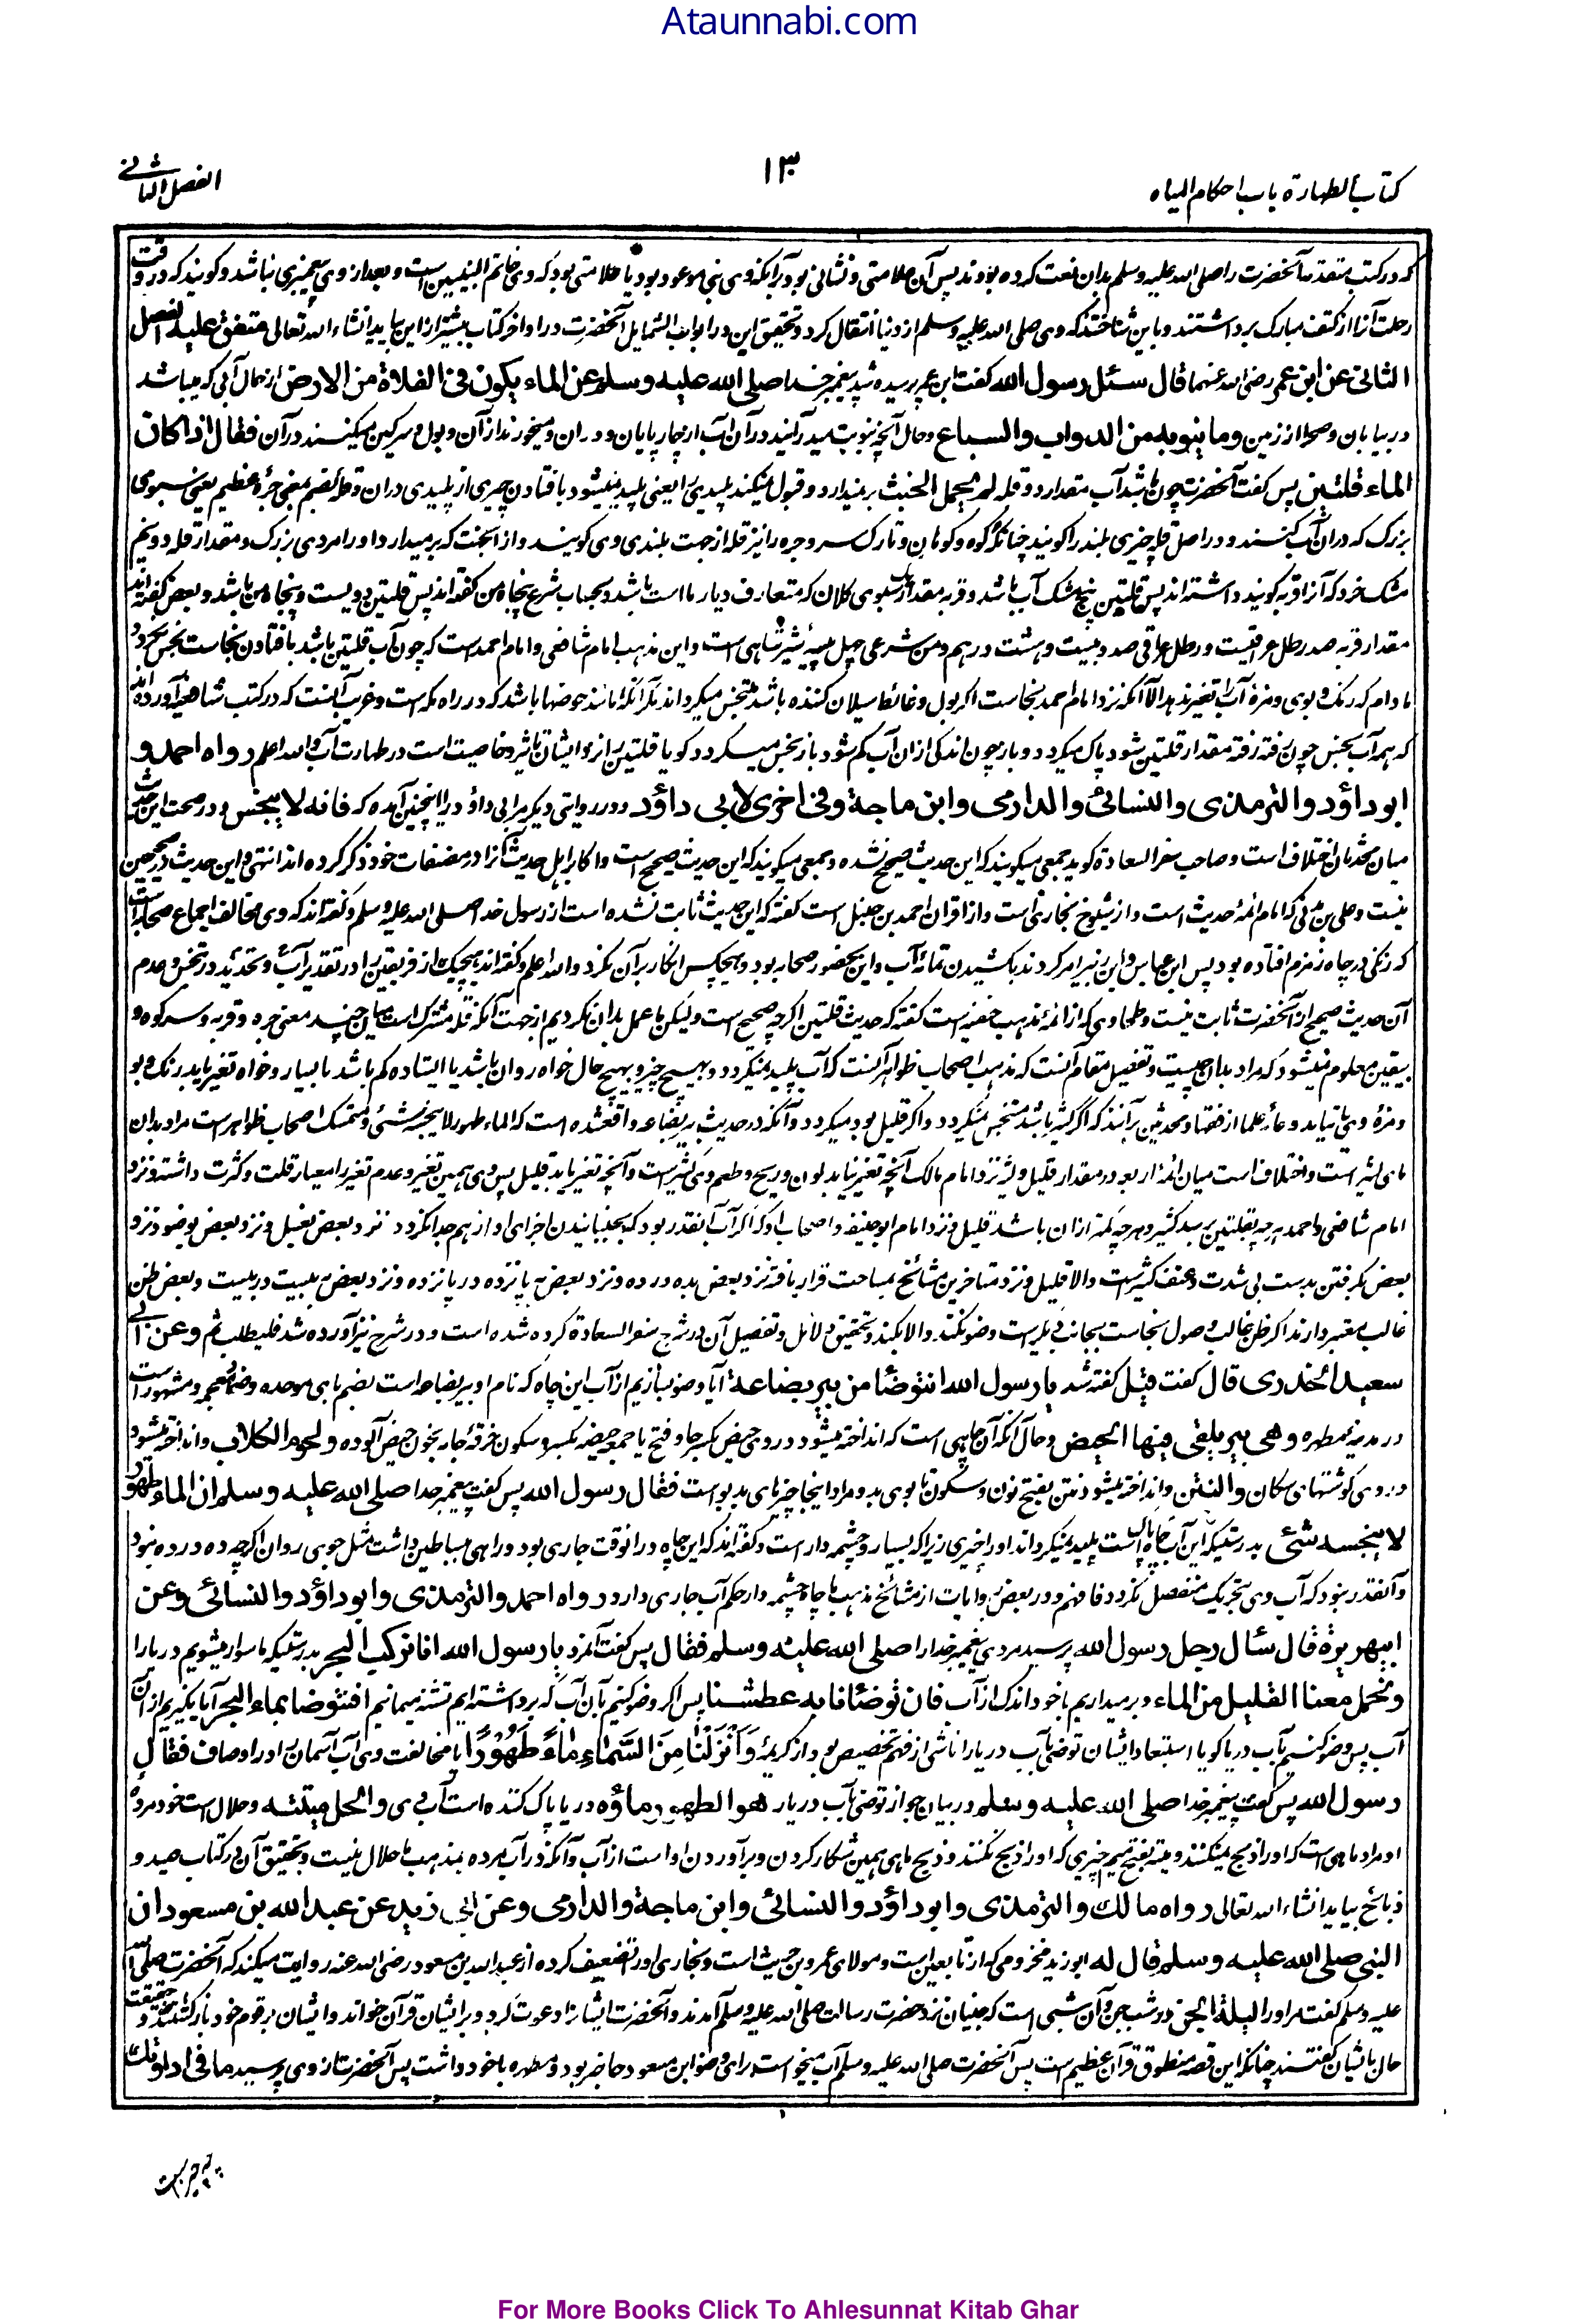 Ataunnabi.com
کتاب الطهارة باب احکام المیاه
۱۳
الفصل الثانی
که در کتب متقدمه آنحضرت را صلی الله علیه وسلم بدان نعت کرده بودند پس آن علامتی و نشانی بود برآنکه وی نبی موعود بود یا علامتی بود که وی خاتم النبیین است و بعد از وی پیغمبری نباشد و گویند که در وقت
رحلت آنرا از کتف مبارک برداشتند و باین شناختند که وی صلی الله علیه وسلم از دنیا انتقال کرد و تحقیق این در ابواب الشمایل آنحضرت در اواخر کتاب بیشتر ازین بیاید انشاء الله تعالی متفق علیه الفصل
الثانی عن ابن عمر رضی الله عنهما قال سئل رسول الله گفت ابن عمر پرسیده شد پیغمبر خدا صلی الله علیه وسلم عن الماء یکون فی الفلاة من الارض از حال آبی که میباشد
در بیابان و صحرا از زمین وما ینوبه من الدواب والسباع و حال آنچه بنوبت میدرآیند در آن آب از چارپایان و ددان و میخورند از آن و بول و سرگین میکنند در آن فقال اذا کان
الماء قلتین پس گفت آنحضرت چون باشد آب مقدار دو قله لم یحمل الخبث بر نمیدارد و قبول نمیکند پلیدی را یعنی پلید نمیشود بافتادن چیزی از پلیدی دران و قله بضم بمعنی جرهٔ عظیم یعنی سبوی
بزرگ که دران آب کنند و در اصل قله چیزی بلند را گویند چنانکه کوه و کوهان و تارک سر و جره را نیز قله از جهت بلندی وی گویند و از آنجهت که برمیدارد او را مردی بزرگ و مقدار قله دو نیم
مشک خرد که آنرا قربه گویند داشته اند پس قلتین پنج مشک آب باشد و قربه مقدار سبوی کلان که متعارف دیار ما است باشد و بحساب شرع پنجاه من گفته اند پس قلتین دویست و پنجاه من باشد و بعض گفته اند
مقدار قربه صد رطل عراقیست و رطل عراقی صد و بیست و هشت درهم و من شرعی چهل پیسه شیرشاهی است و این مذهب امام شافعی و امام احمد است که چون آب قلتین باشد بافتادن نجاست نجس نگردد
مادام که رنگ و بوی و مزهٔ آب را تغییر ندهد الا آنکه نزد امام احمد نجاست اگر بول و غائط سیلان کننده باشد متنجس میگرداند مگر آنکه مانند حوضها باشد که در راه مکه است و غریب آنست که در کتب شافعیه آورده اند
که همه آب نجس چون رفته رفته مقدار قلتین شود پاک میگردد و باز چون اندکی ازان آب کم شود باز نجس میگردد گویا قلتین را نزد ایشان تاثیر و خاصیت است در طهارت آب والله اعلم رواه احمد و
ابوداؤد والترمذی والنسائی والدارمی وابن ماجة وفی اخری لابی داؤد و در روایتی دیگر مر ابی داؤد را اینچنین آمده که فانه لا ینجس و در صحت این حدیث
میان محدثان اختلاف است و صاحب سفر السعادة گوید جمعی میگویند که این حدیث صحیح نشده و جمعی میگویند که این حدیث صحیح است و اکابر اهل حدیث آنرا در مصنفات خود ذکر کرده اند انتهی و این حدیث در صحیحین
نیست و علی بن مدینی که امام ائمهٔ حدیث است و از شیوخ بخاری است و از اقران احمد بن حنبل است گفته که این حدیث ثابت نشده است از رسول خدا صلی الله علیه وسلم و گفته اند که وی مخالف اجماع صحابه است
که زنگی در چاه زمزم افتاده بود پس ابن عباس و ابن زبیر امر کردند بکشیدن تمامهٔ آب و این بحضور صحابه بود و هیچکس انکار بر آن نکرد والله اعلم و گفته اند هیچیک از فریقین را در تقدیر آب و تحدید در تنجس و عدم
آن حدیث صحیح از آنحضرت ثابت نیست و طحاوی که از ائمهٔ مذهب حنفیه است گفته که حدیث قلتین اگرچه صحیح است ولیکن ما عمل بدان نکردیم از جهت آنکه قله مشترک است میان چند معنی جره و قربه و سر کوه و
بیقین معلوم نمیشود که مراد بدان چیست و تفصیل مقام آنست که مذهب اصحاب ظواهر آنست که آب پلید نمیگردد و بهیچ چیز و بهیچ حال خواه روان باشد یا ایستاده کم باشد یا بسیار و خواه تغیر یابد رنگ و بو
و مزهٔ وی یا نیابد و عامهٔ علما از فقها و محدثین برآنند که اگر کثیر باشد متنجس نمیگردد و اگر قلیل بود میگردد و آنکه در حدیث بیر بضاعه واقع شده است که الماء طهور لا ینجسه شئی و متمسک اصحاب ظواهر است مراد بدان
مای کثیر است و اختلاف است میان ائمهٔ اربعه در مقدار قلیل و کثیر نزد امام مالک آنچه تغیر نیابد بلون و ریح و طعم وی کثیر است و آنچه تغیر یابد قلیل پس وی همین تغیر و عدم تغیر را معیار قلت و کثرت داشته و نزد
امام شافعی و احمد هرچه بقلتین برسد کثیر و هرچه کمتر ازان باشد قلیل و نزد امام ابوحنیفه و اصحاب او که اگر آب آنقدر بود که بجنبانیدن اجزای او از هم جدا نگردد نزد بعض بغسل و نزد بعض بوضو و نزد
بعض بگرفتن بدست بی شدت و عنف کثیر است والا قلیل و نزد متاخرین مشائخ بمساحت قرار یافته نزد بعض بده در ده و نزد بعض به پانزده در پانزده و نزد بعض به بیست در بیست و بعض ظن
غالب معتبر دارند اگر ظن غالب وصول نجاست بجانب دیگر است وضو نکند والا بکند و تحقیق دلائل و تفصیل آن در شرح سفر السعادة کرده شده است و در شرح نیز آورده شد فلیطلب ثم وعن ابی
سعید الخدری قال گفت قیل گفته شد یا رسول الله انتوضا من بیر بضاعة آیا وضو بسازیم از آب این چاه که نام او بیر بضاعه است بضم بای موحده وضاد معجمه و مشهور است
در مدینه مطهره وهی بیر یلقی فیها الحیض و حال آنکه آن چاهی است که انداخته میشود در وی حیض بکسر حا و فتح یا جمع حیضه بکسر و سکون خرقهٔ جامه بخون حیض آلوده ولحوم الکلاب و انداخته میشود
در وی گوشتهای سگان والنتن و انداخته میشود نتن بفتح نون و سکون تا بوی بد و مراد اینجا چیزهای بدبو است فقال رسول الله پس گفت پیغمبر خدا صلی الله علیه وسلم ان الماء طهور
لا ینجسه شئی بدرستیکه این آب چاه پاک است پلید نمیگرداند او را چیزی زیرا که بسیار و چشمه دار است و گفته اند که این چاه درانوقت جاری بود و راهی بساطین داشت مثل جوی روان اگرچه ده در ده نبود
و آنقدر نبود که آب وی بتحریک منفصل نگردد فافهم و در بعض روایات از مشائخ مذهب ما چاه چشمه دار حکم آب جاری دارد رواه احمد والترمذی وابوداؤد والنسائی وعن
ابیهریرة قال سئال رجل رسول الله پرسید مردی پیغمبر خدا را صلی الله علیه وسلم فقال پس گفت آنمرد یا رسول الله انا نرکب البحر بدرستیکه ما سوار میشویم دریا را
ونحمل معنا القلیل من الماء و برمیداریم با خود اندک از آب فان توضانا به عطشنا پس اگر وضو کنیم بآن آب که برداشته ایم تشنه میمانیم افنتوضا بماء البحر آیا بگیریم از آن
آب پس وضو کنیم بآب دریا گویا استبعاد ایشان توضی بآب دریا را ناشی از فهم تخصیص بود از کریمهٔ وَاَنْزَلْنَا مِنَ السَّمَاءِ مَاءً طَهُوْرًا یا مخالفت وی آب آسمان را در اوصاف فقال
رسول الله پس گفت پیغمبر خدا صلی الله علیه وسلم در بیان جواز توضی بآب دریا هو الطهور ماؤه دریا پاک کننده است آب وی والحل میتته و حلال است خود مرده
او مراد ماهی است که او را ذبح نمیکنند و میته بفتح میم چیزی که او را ذبح نکنند و ذبح ماهی همین شکار کردن و برآوردن او است از آب و آنکه در آب مرده بمذهب ما حلال نیست و تحقیق آن در کتاب صید و
ذبائح بیاید انشاء الله تعالی رواه مالک والترمذی وابوداؤد والنسائی وابن ماجة والدارمی وعن ابی زید عن عبد الله بن مسعود ان
النبی صلی الله علیه وسلم قال له ابوزید مخزومی که از تابعین است و مولای عمرو بن حریث است و بخاری او را تضعیف کرده از عبدالله بن مسعود رضی الله عنه روایت میکند که آنحضرت صلی الله
علیه وسلم گفت مر او را لیلة الجن در شب جن و آن شبی است که جنیان نزد حضرت رسالت صلی الله علیه وسلم آمدند و آنحضرت ایشانرا دعوت کرد و بر ایشان قرآن خواند و ایشان بر قوم خود بازگشتند و حقیقت
حال بایشان گفتند چنانکه این قصه منطوق قرآن عظیم است پس آنحضرت صلی الله علیه وسلم آب میخواست برای وضو ابن مسعود حاضر بود و مطهره با خود داشت پس آنحضرت از وی پرسید ما فی اداوتک
For More Books Click To Ahlesunnat Kitab Ghar